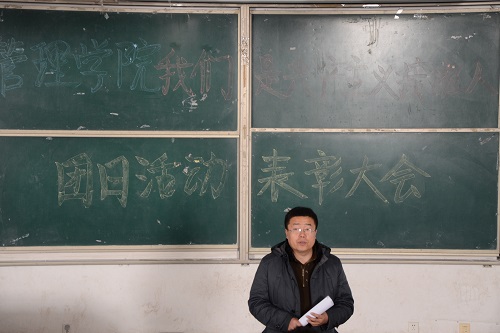 管理学院我们是
团日活动 表彰大会